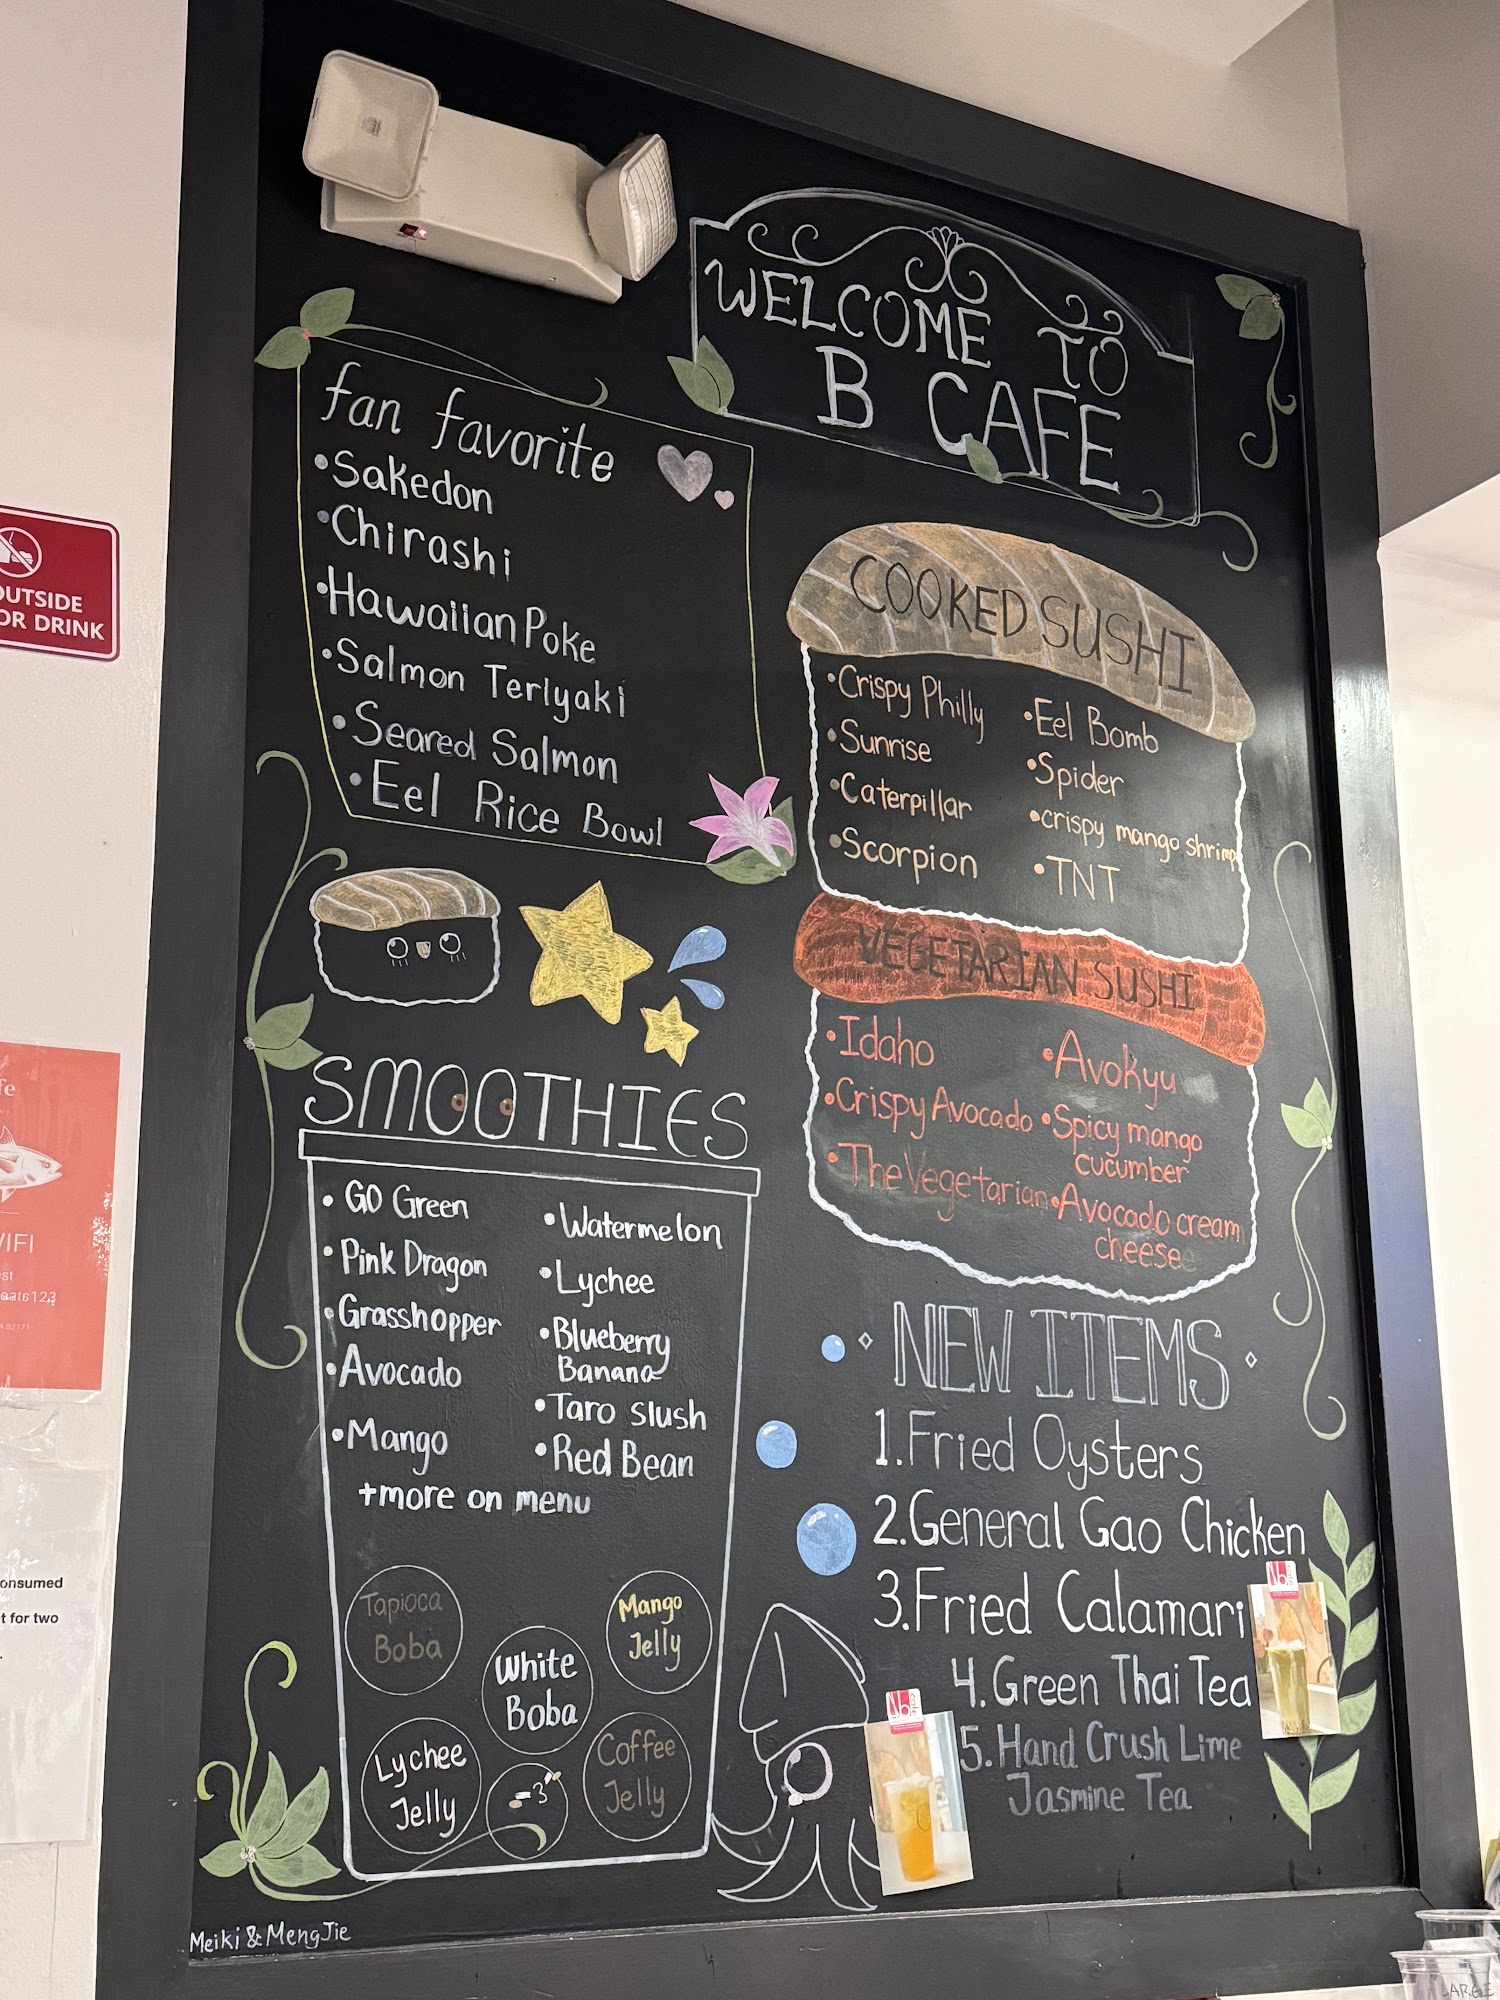 WELCOME TO
B CAFE
fan favorite
•Sakedon
•Chirashi
•Hawaiian Poke
•Salmon Teriyaki
•Seared Salmon
•Eel Rice Bowl
COOKED SUSHI
•Crispy Philly
•Sunrise
•Caterpillar
•Scorpion
•Eel Bomb
•Spider
•crispy mango shrimp
•TNT
VEGETARIAN SUSHI
•Idaho
•Crispy Avocado
•The Vegetarian
•Avokyu
•Spicy mango
cucumber
•Avocado cream
cheese
SMOOTHIES
• GO Green
• Pink Dragon
•Grasshopper
•Avocado
•Mango
•Watermelon
•Lychee
•Blueberry
Banana
•Taro slush
•Red Bean
+more on menu
Tapioca
Boba
White
Boba
Mango
Jelly
Lychee
Jelly
Coffee
Jelly
NEW ITEMS
1.Fried Oysters
2.General Gao Chicken
3.Fried Calamari
4.Green Thai Tea
5.Hand Crush Lime
Jasmine Tea
Meiki & MengJie
OUTSIDE
OR DRINK
onsumed
t for two
LARGE